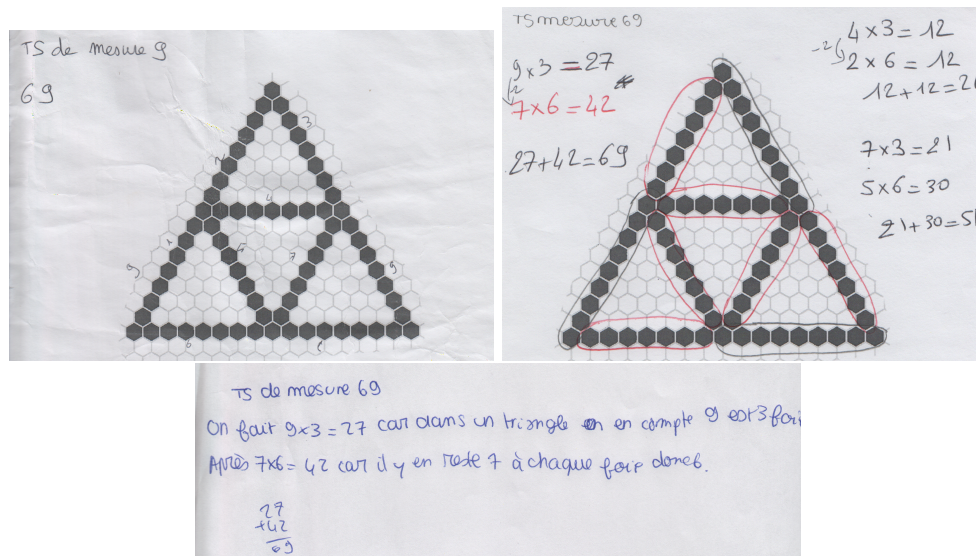 TS de mesure 9
69
3
4
7
9
9
TS mesure 69
9x3=27
-2
7x6=42
27+42=69
-2
4x3=12
2x6=12
12+12=24
7x3=21
5x6=30
21+30=51
TS de mesure 69
On fait 9x3=27 car dans un triangle on en compte 9 est 3 fois
Après 7x6=42 car il y en reste 7 à chaque fois donc 6.
27
+42
69